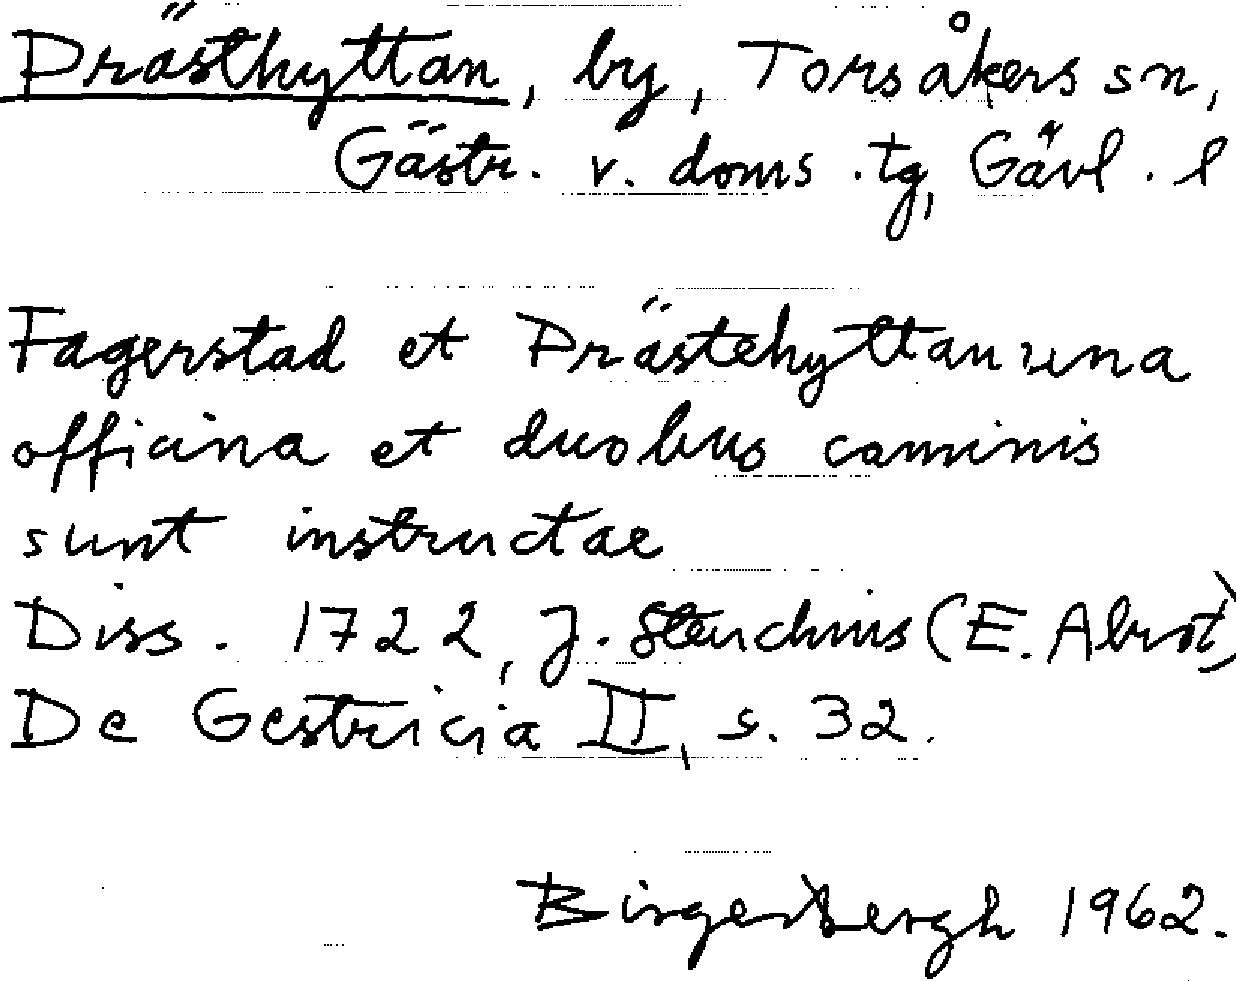 Prästhyttan, by, Torsåkers sn,
Gästr. v. doms.tg, Gävl. l
Fagerstad et Prästehyttan una
officina et duobus caminis
sunt instructae
Diss. 1722, J. Steuchius (E. Abrot)
De Gestricia II, s. 32.
Birger Bergh 1962.